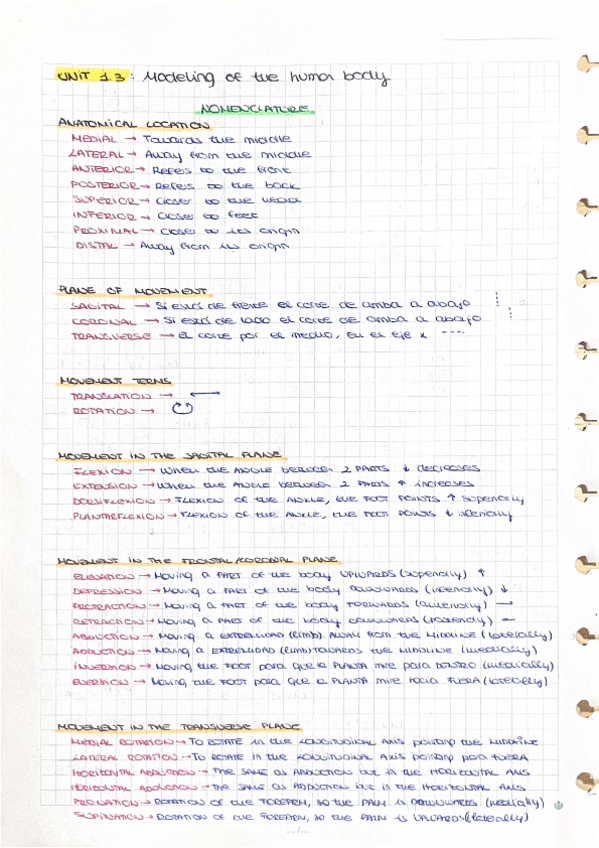 UNIT 1.3: Modeling of the human body
NOMENCLATURE
ANATOMICAL LOCATION
MEDIAL → Towards the middle
LATERAL → Away from the middle
ANTERIOR → Refers to the front
POSTERIOR → Refers to the back
SUPERIOR → Closer to the head
INFERIOR → Closer to feet
PROXIMAL → Closer to its origin
DISTAL → Away from its origin
PLANE OF MOVEMENT
SAGITAL → Si está de frente el corte de arriba a abajo
CORONAL → Si está de lado el corte de arriba a abajo
TRANSVERSE → El corte por el medio, en el eje x
MOVEMENT TERMS
TRANSLATION →
ROTATION →
MOVEMENT IN THE SAGITAL PLANE
FLEXION → When the ANGLE between 2 PARTS ↓ decreases
EXTENSION → When the ANGLE between 2 PARTS ↑ increases
DORSIFLEXION → FLEXION OF the ANKLE, the FOOT POINTS ↑ superiorly
PLANTARFLEXION → FLEXION OF the ANKLE, the FOOT POINTS ↓ inferiorly
MOVEMENT IN THE FRONTAL/CORONAL PLANE
ELEVATION → Moving A PART OF the body UPWARDS (superiorly) ↑
DEPRESSION → Moving A PART OF the body DOWNWARDS (inferiorly) ↓
PROTRACTION → Moving A PART OF the body FORWARDS (anteriorly) →
RETRACTION → Moving A PART OF the body (posteriorly) ←
ABDUCTION → Moving A EXTREMIDAD (limb) AWAY FROM the MIDLINE (laterally)
ADDUCTION → Moving A EXTREMIDAD (limb) TOWARDS the MIDLINE (medially)
INVERSION → Moving the FOOT para que la PLANTA mire para DENTRO (medially)
EVERSION → Moving the FOOT para que la PLANTA mire hacia FUERA (laterally)
MOVEMENT IN THE TRANSVERSE PLANE
MEDIAL ROTATION → TO ROTATE in the LONGITUDINAL AXIS pointing the MIDLINE
LATERAL ROTATION → TO ROTATE in the LONGITUDINAL AXIS pointing para FUERA
HORIZONTAL ABDUCTION → THE SAME AS ABDUCTION but in the HORIZONTAL AXIS
HORIZONTAL ADDUCTION → THE SAME AS ADDUCTION but in the HORIZONTAL AXIS
PRONATION → ROTATION OF the FOREARM, so the PALM is DOWNWARDS (medially)
SUPINATION → ROTATION OF the FOREARM, so the PALM is UPWARDS (laterally)